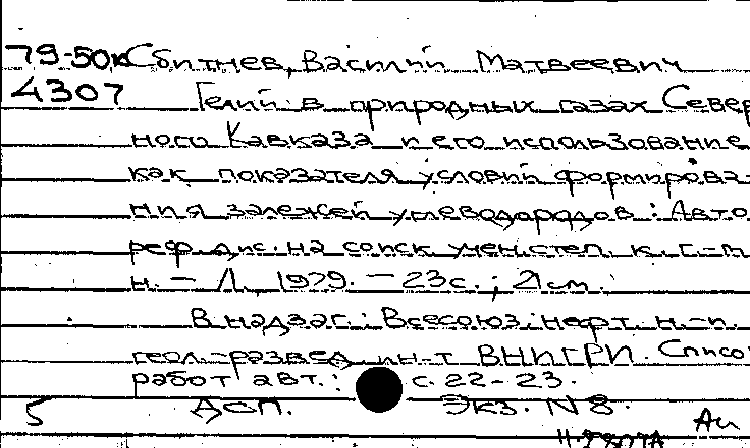 79-50к Сбитнев, Василий Матвеевич
4307 Гелий в природных газах Север
ного Кавказа и его использование
как показателя условий формирова-
ния залежей углеводородов : Авто
реф. дис. на соиск. учен. степ. к. г.-м.
н. - Л., 1979. - 23 с. ; 21 см.
В надзаг.: Всесоюз. нефт. н.-и.
геол.-развед. ин-т ВНИГРИ. Списо
работ авт.: с. 22-23.
5 ДСП. Экз. N 8.